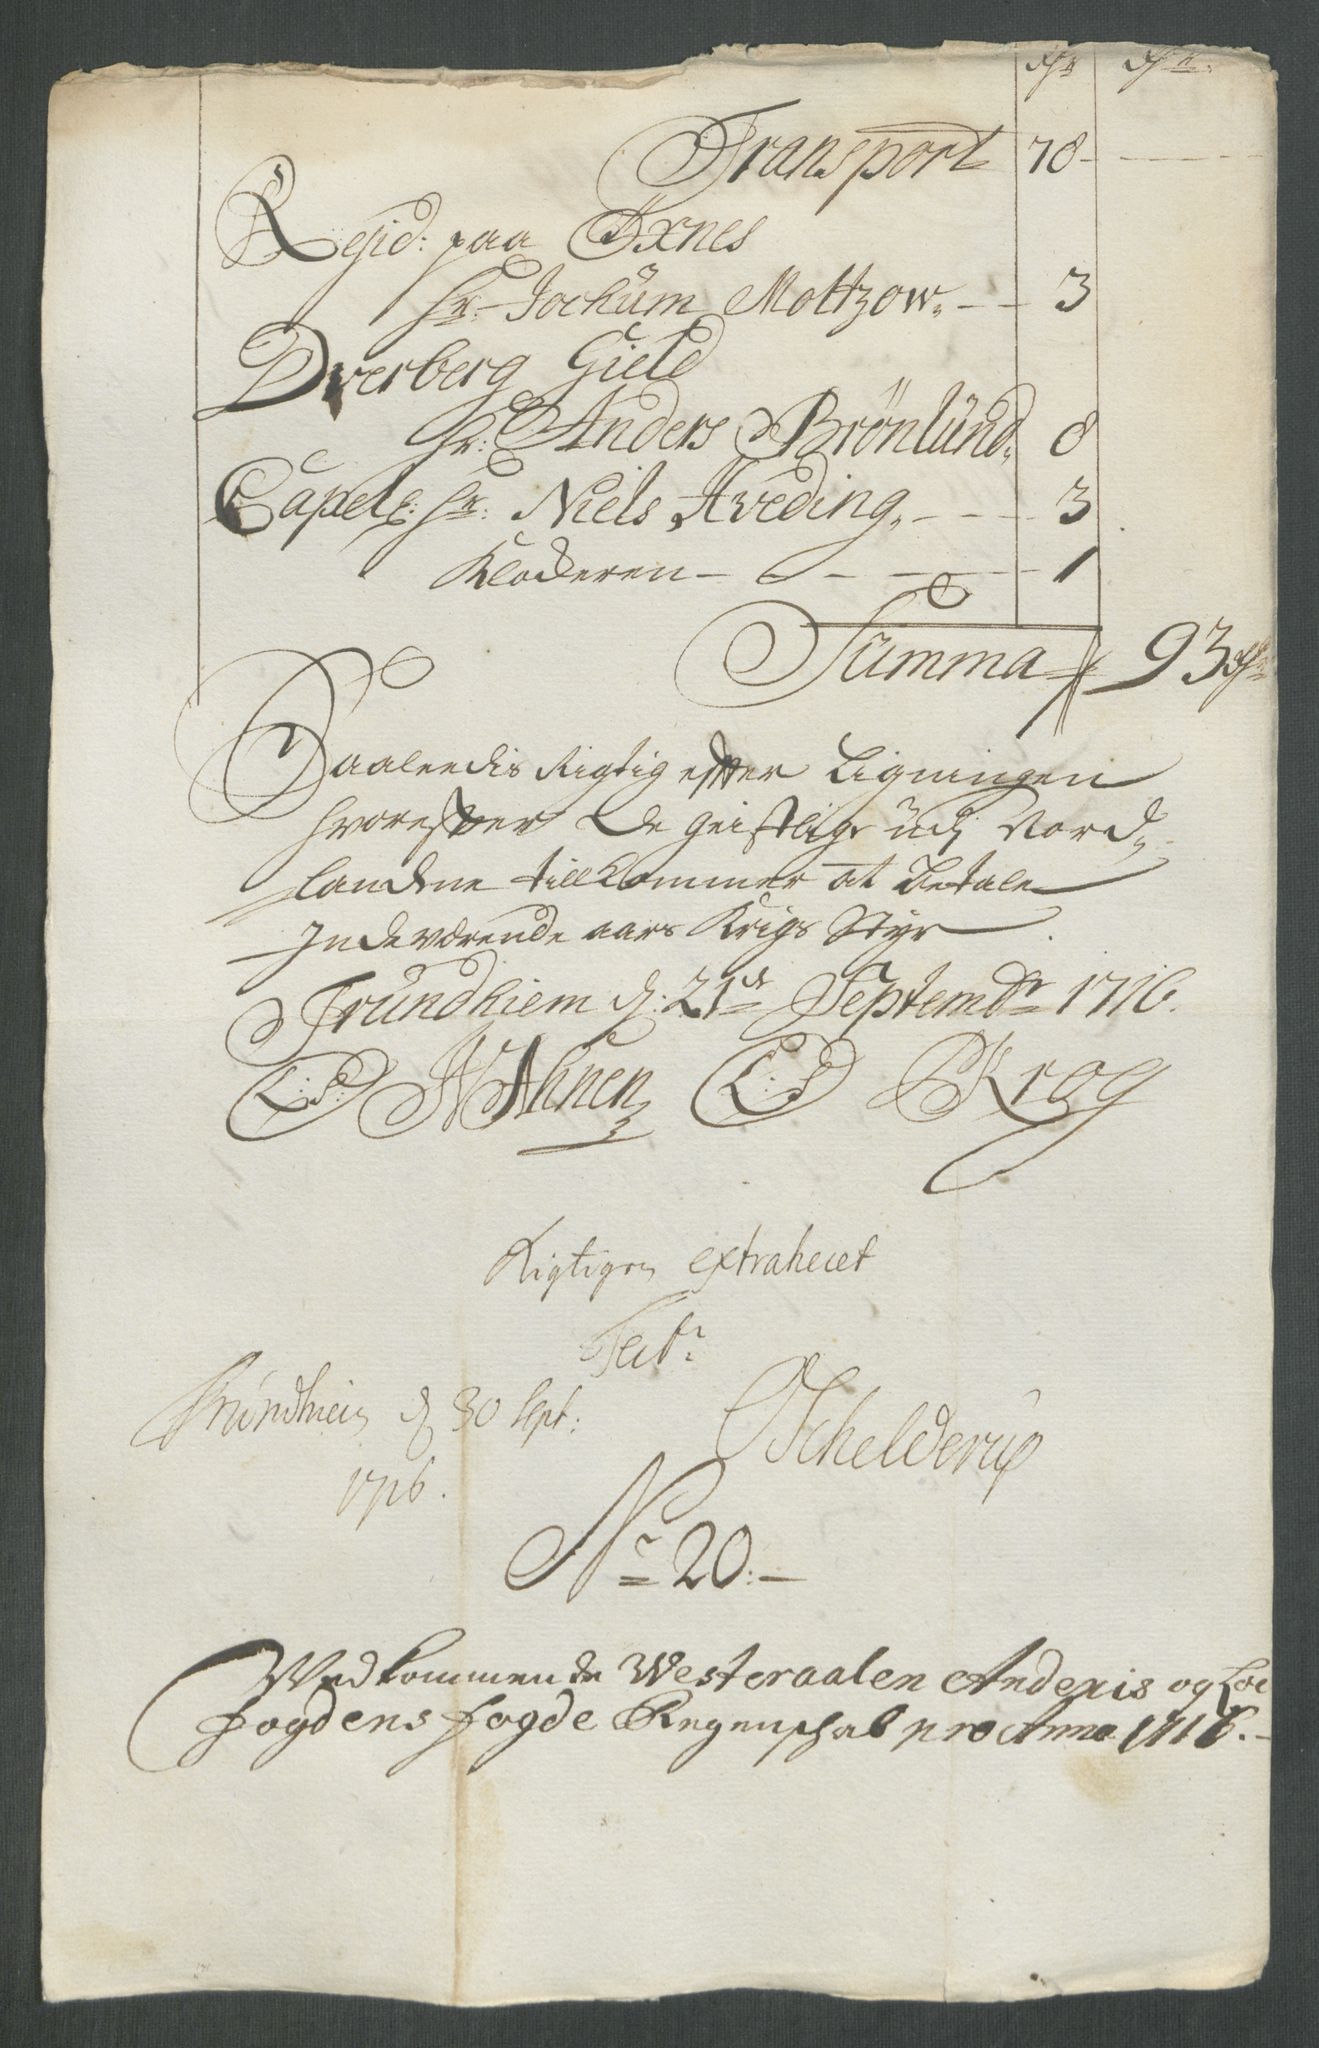 Rdr Rdr
Transport 78
Resid: paa Öxnes
hr. Jochum Mottzow. 3
Dverberg Gield
hr: Anders Brönlund. 8
Capel: hr: Niels Hveding. 3
Klocheren 1
Summa 93 Rdr
Saaledis Rigtig efter Ligningen
hvorefter De geistlige udj Nord-
landene tillkommer at betale
Indeværende aars Krigs Styr
Trundhiem d: 21de Septembr 1716.
L:S: Ahnen L:S Krog
Rigtigen extraheret
Test:
Trundhiem d 30 Sept:
1716.
Schelderup
No 20:
Vedkommende Westeraalen Andenis og
fogdens fogde Regenskab pro Anno 1716.